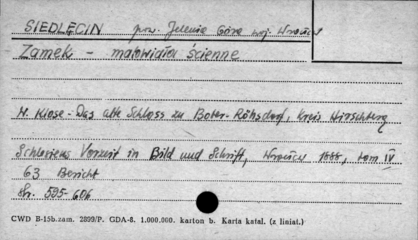 SIEDLĘCIN pow. Jelenia Góra woj. Wrocław
Zamek - malowidła ścienne
H. Klose - Das alte Schloss zu Bober-Röhsdorf, Kreis Hirschberg
Schlesiens Vorzeit in Bild und Schrift, 1888, tom IV
63 Bericht
Str. 595-606
CWD B-15b.zam. 2899/P. GDA-8. 1.000.000. karton b. Karta katal. (z liniat.)